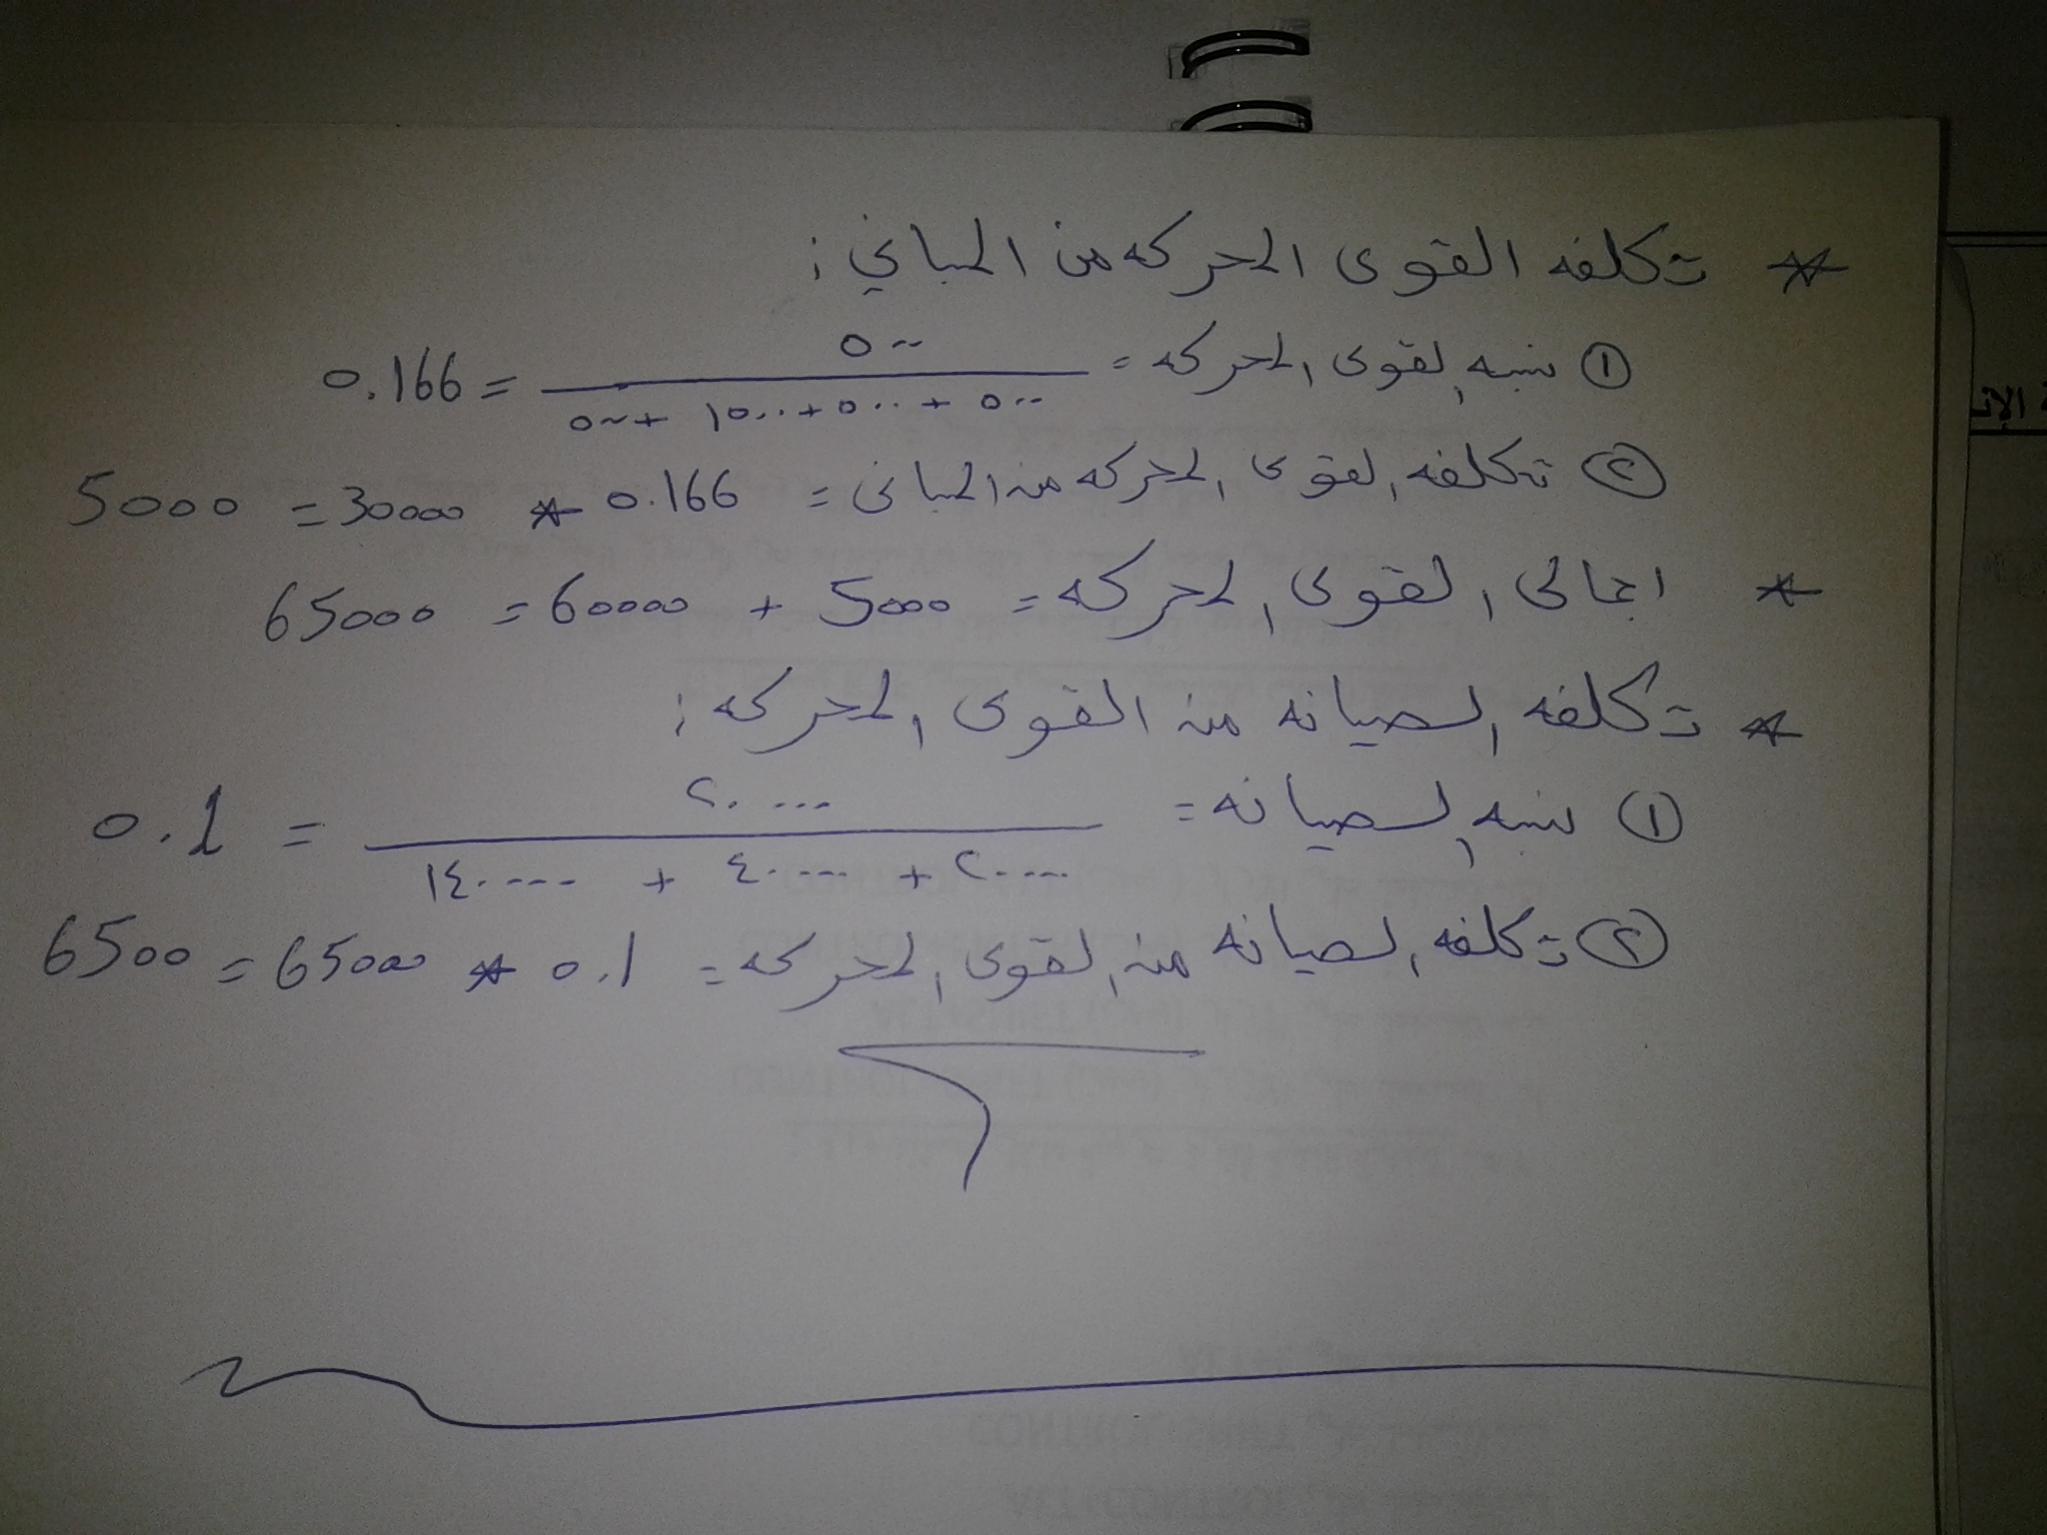 * تكلفه القوى المحركه من المباني :
① نسبه القوى المحركه = ٥٠٠ / ٥٠٠ + ١٥٠٠ + ٥٠٠ + ٥٠٠ = 0.166
② تكلفه القوى المحركه من المبانى = 0.166 * 30000 = 5000
* اجمالى القوى المحركه = 5000 + 60000 = 65000
* تكلفه الصيانه من القوى المحركه :
① نسبه الصيانه = ٢٠٠٠٠ / ١٤٠٠٠٠ + ٤٠٠٠٠ + ٢٠٠٠٠ = 0.1
② تكلفه الصيانه من القوى المحركه = 0.1 * 65000 = 6500